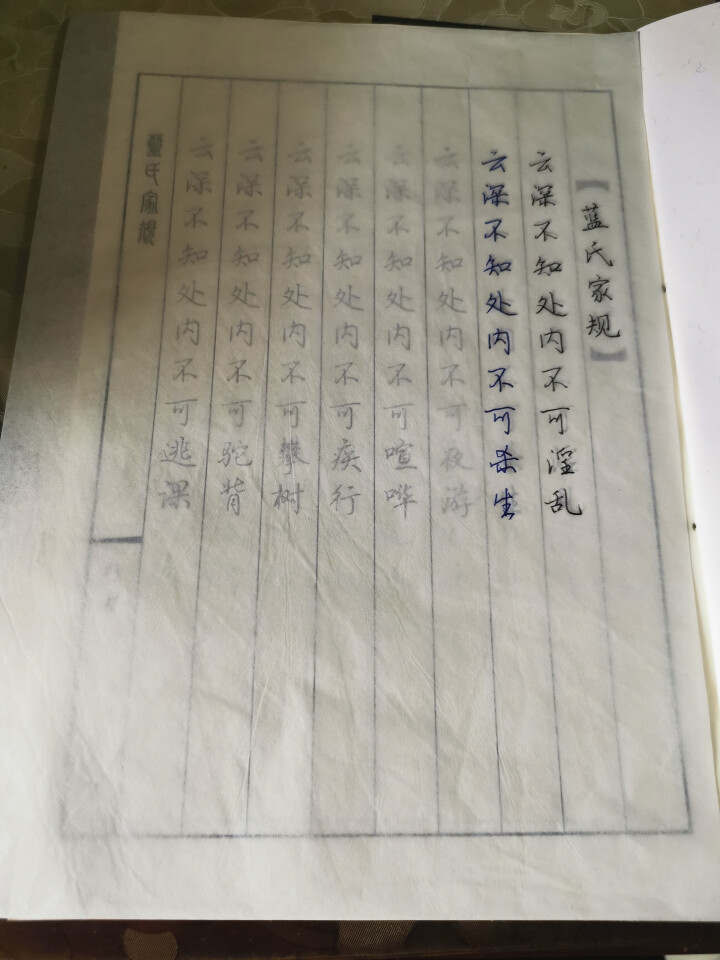 【蓝氏家规】
云深不知处内不可淫乱
云深不知处内不可杀生
云深不知处内不可夜游
云深不知处内不可喧哗
云深不知处内不可疾行
云深不知处内不可攀树
云深不知处内不可驼背
云深不知处内不可逃课
蓝氏家规